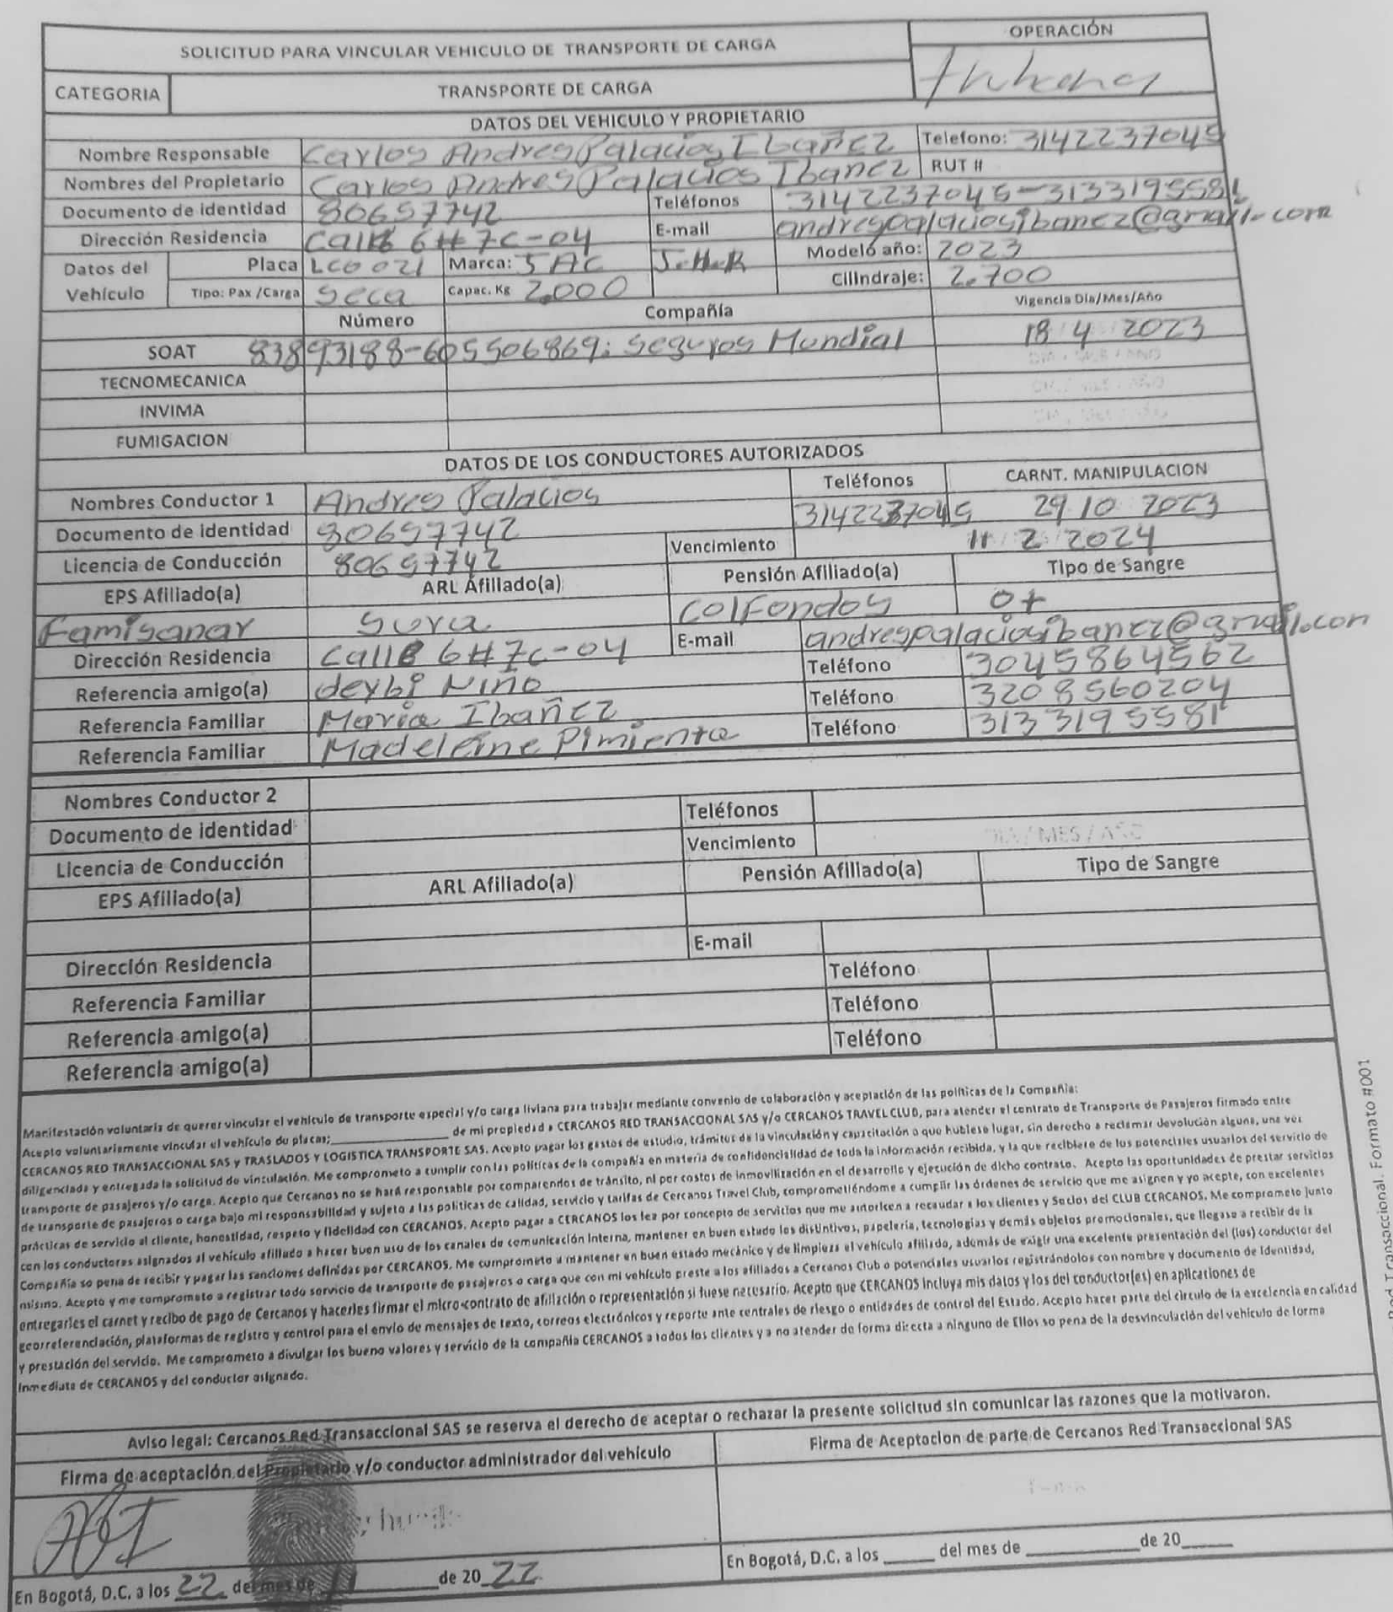 SOLICITUD PARA VINCULAR VEHICULO DE TRANSPORTE DE CARGA
OPERACIÓN
CATEGORIA TRANSPORTE DE CARGA
DATOS DEL VEHICULO Y PROPIETARIO
Nombre Responsable Carlos Andres Palacios Ibañez Telefono: 3142237045
Nombres del Propietario Carlos Andres Palacios Ibanez RUT #
Documento de identidad 80657742 Teléfonos 3142237045-3133195581
Dirección Residencia Calle 6#7c-04 E-mail andrespalaciosibanez@gmail.com
Datos del Vehículo Placa LCO021 Marca: JAC Modelo año: 2023
Tipo: Pax /Carga Seca Capac. Kg 2.000 Cilindraje: 2.700
Número Compañía Vigencia Dia/Mes/Año
SOAT 83893188-605506869: Seguros Mundial 18 4 2023
TECNOMECANICA
INVIMA
FUMIGACION
DATOS DE LOS CONDUCTORES AUTORIZADOS
Nombres Conductor 1 Andres Palacios Teléfonos CARNT. MANIPULACION
Documento de identidad 80657742 3142237045 29 10 2023
Licencia de Conducción 80657742 Vencimiento 11 2 2024
EPS Afiliado(a) ARL Afiliado(a) Pensión Afiliado(a) Tipo de Sangre
Famisanar Sura Colfondos O+
Dirección Residencia Calle 6#7c-04 E-mail andrespalaciosibanez@gmail.com
Referencia amigo(a) deybi Niño Teléfono 3045864562
Referencia Familiar Maria Ibañez Teléfono 3208560204
Referencia Familiar Madeleine Pimienta Teléfono 3133195581
Nombres Conductor 2
Documento de identidad Teléfonos
Licencia de Conducción Vencimiento DIA / MES / AÑO
EPS Afiliado(a) ARL Afiliado(a) Pensión Afiliado(a) Tipo de Sangre
Dirección Residencia E-mail
Referencia Familiar Teléfono
Referencia amigo(a) Teléfono
Referencia amigo(a) Teléfono
Manifestación voluntaria de querer vincular el vehículo de transporte especial y/o carga liviana para trabajar mediante convenio de colaboración y aceptación de las políticas de la Compañía:
Acepto voluntariamente vincular el vehículo de placas;____________ de mi propiedad a CERCANOS RED TRANSACCIONAL SAS y/o CERCANOS TRAVEL CLUB, para atender el contrato de Transporte de Pasajeros firmado entre
CERCANOS RED TRANSACCIONAL SAS y TRASLADOS Y LOGISTICA TRANSPORTE SAS. Acepto pagar los gastos de estudio, trámites de la vinculación y capacitación a que hubiese lugar, sin derecho a reclamar devolución alguna, una vez
diligenciada y entregada la solicitud de vinculación. Me comprometo a cumplir con las políticas de la compañía en materia de confidencialidad de toda la información recibida, y la que recibiere de los potenciales usuarios del servicio de
transporte de pasajeros y/o carga. Acepto que Cercanos no se hará responsable por comparendos de tránsito, ni por costos de inmovilización en el desarrollo y ejecución de dicho contrato. Acepto las oportunidades de prestar servicios
de transporte de pasajeros o carga bajo mi responsabilidad y sujeto a las políticas de calidad, servicio y tarifas de Cercanos Travel Club, comprometiéndome a cumplir las órdenes de servicio que me asignen y yo acepte, con excelentes
prácticas de servicio al cliente, honestidad, respeto y fidelidad con CERCANOS. Acepto pagar a CERCANOS los fee por concepto de servicios que me autoricen a recaudar a los clientes y Socios del CLUB CERCANOS. Me comprometo junto
con los conductores asignados al vehículo afiliado a hacer buen uso de los canales de comunicación interna, mantener en buen estado los distintivos, papelería, tecnologías y demás objetos promocionales, que llegase a recibir de la
Compañía so pena de recibir y pagar las sanciones definidas por CERCANOS. Me comprometo a mantener en buen estado mecánico y de limpieza el vehículo afiliado, además de exigir una excelente presentación del (los) conductor del
mismo. Acepto y me comprometo a registrar todo servicio de transporte de pasajeros o carga que con mi vehículo preste a los afiliados a Cercanos Club o potenciales usuarios registrándolos con nombre y documento de identidad,
entregarles el carnet y recibo de pago de Cercanos y hacerles firmar el micro-contrato de afiliación o representación si fuese necesario. Acepto que CERCANOS incluya mis datos y los del conductor(es) en aplicationes de
georreferenciación, plataformas de registro y control para el envío de mensajes de texto, correos electrónicos y reporte ante centrales de riesgo o entidades de control del Estado. Acepto hacer parte del círculo de la excelencia en calidad
y prestación del servicio. Me comprometo a divulgar los bueno valores y servicio de la compañía CERCANOS a todos los clientes y a no atender de forma directa a ninguno de Ellos so pena de la desvinculación del vehículo de forma
inmediata de CERCANOS y del conductor asignado.
Aviso legal: Cercanos Red Transaccional SAS se reserva el derecho de aceptar o rechazar la presente solicitud sin comunicar las razones que la motivaron.
Firma de aceptación del Propietario y/o conductor administrador del vehículo Firma de Aceptacion de parte de Cercanos Red Transaccional SAS
En Bogotá, D.C. a los 22 del mes de 11 de 20 22 En Bogotá, D.C. a los _____ del mes de __________ de 20_____
Red Transaccional. Formato #001